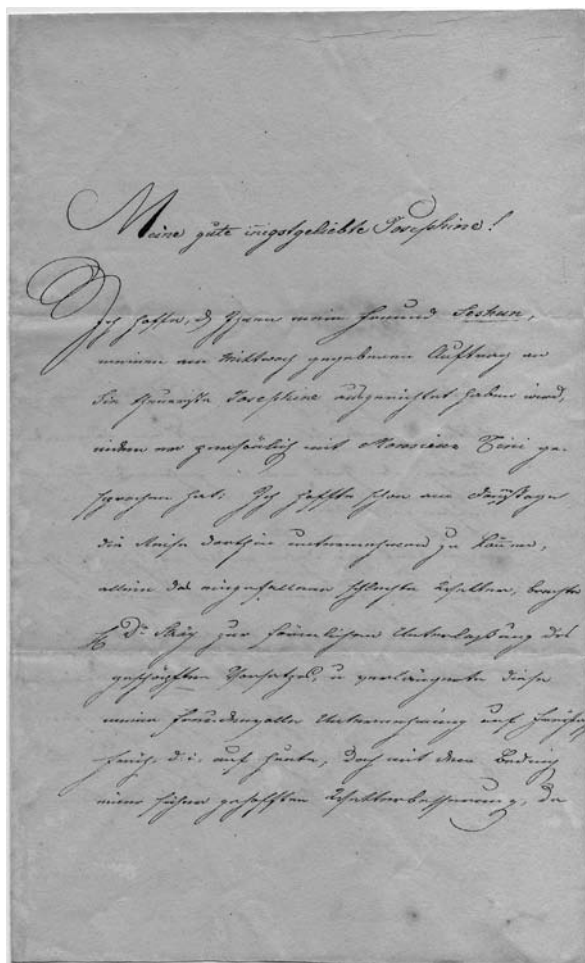 Meine gute iñigstgeliebte Josephine!
Ich hoffe, d Ihnen mein Freund Seshun,
meinen am Mittwoch gegebenen Auftrag an
die theuerste Josephine ausgerichtet haben wird,
indem er persönlich mit Monsieur Tini ge-
sprochen hat; Ich hoffte schon am
die Reise dorthin unternehmen zu köñen,
allein das eingefallene schlechte Wetter, brachte
H Dr zur förmlichen Unterlaßung des
geschöpften Vorsatzes, u verlängerte diese
meine freudenvolle Unternehmung auf
früh, d. i. auf heute, doch mit dem Beding
einer sicher gehofften Wetterbesserung, da